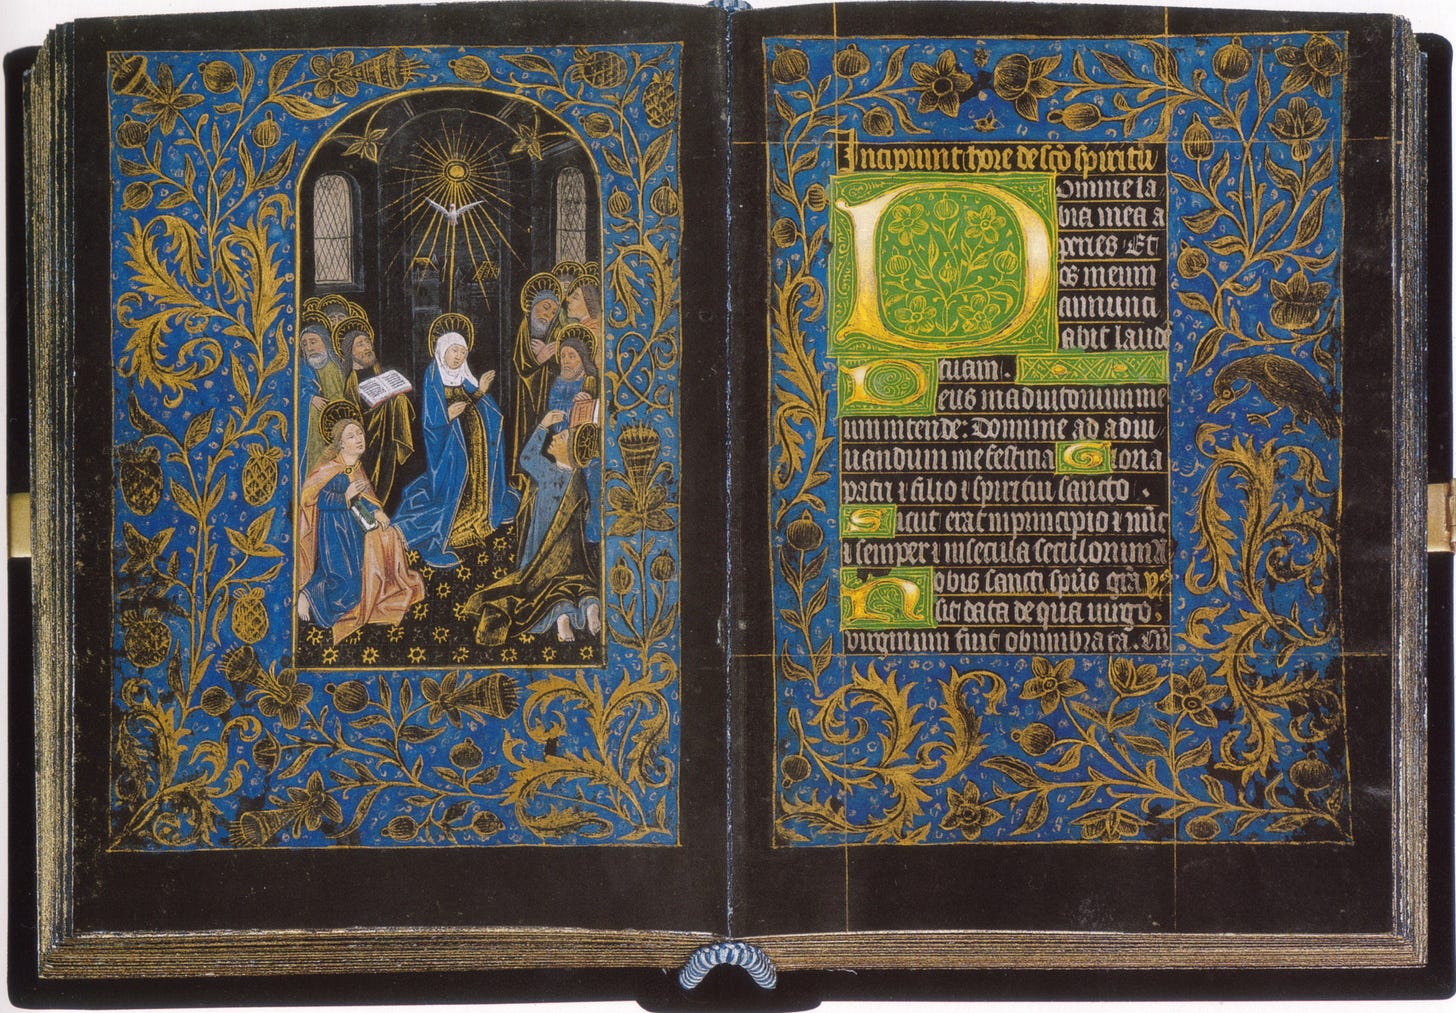 Incipiunt hore de sco spiritu
Domine la
bia mea a
peries Et
os meum
annunci
abit laude
tuam.
Deus in adiutorium me
um intende: Domine ad adiu
uandum me festina Gloria
patri ⁊ filio ⁊ spiritui sancto.
Sicut erat in principio ⁊ nūc
⁊ semper ⁊ in secula seculorum
Nobis sancti spūs grā
sit data de qua uirgo
uirginum fuit obumbrata. Cū